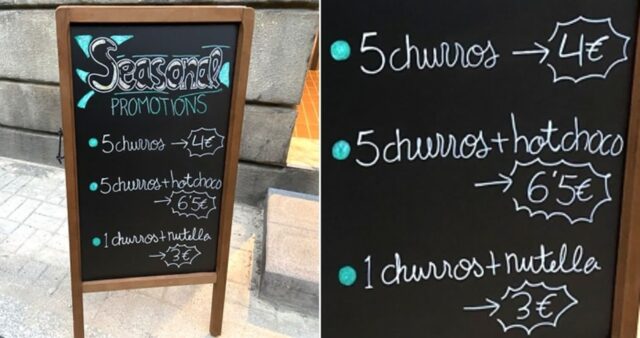 Seasonal
PROMOTIONS
5 churros → 4€
5 churros + hot choco
→ 6'5€
1 churros + nutella
→ 3€
5 churros → 4€
5 churros + hot choco
→ 6'5€
1 churros + nutella
→ 3€